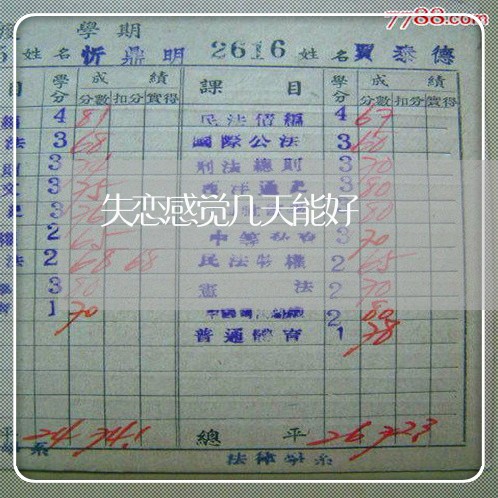 7788.com
學期
姓名 忻鼎明 2616 姓名 賈泰德
目 學分 成績 課目 學分 成績
分數 扣分 實得 分數 扣分 實得
4 81 民法債編 4 67
法 3 68 國際公法 3 60
3 刑法總則 3 70
3 75 西洋通史 3 80
3 3 80
失恋感觉几天能好
2 65 3 70
法 2 68 68 民法物權 2 65
3 80 憲法 2 70
1 70 2 80
普通體育 1 78
平 24 74.1 總平 26 72.3
系 法律學系